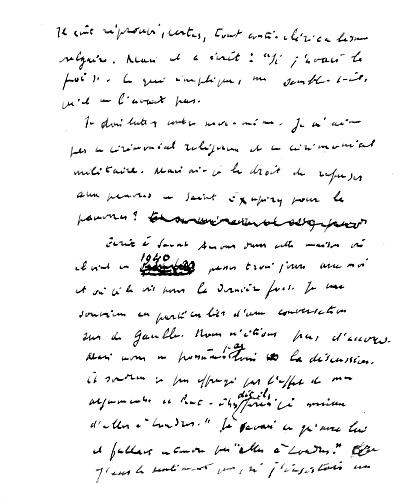 Il eût réprouvé, certes, tout anti-cléricalisme
vulgaire. Mais il a écrit : "Si j'avais la
foi". Ce qui implique, me semble-t-il,
qu'il ne l'avait pas.
Je dois lutter contre moi-même. Je n'aime
pas ce cérémonial religieux et ce cérémonial
militaire. Mais ai-je le droit de refuser
aux pauvres un Saint Exupéry pour les
pauvres ?
Écrit à Saint Amour dans cette maison où
il vint en 1940 passer trois jours avec moi
et où je le vis pour la dernière fois. Je me
souviens en particulier d'une conversation
sur de Gaulle. Nous n'étions pas d'accord.
Mais nous ne poussâmes pas loin la discussion.
Et soudain
arguments et Peut-être
d'aller à Londres." Je savais ce qu'avec lui
il fallait "aller à Londres."
J'eus le sentiment que, si j'insistais